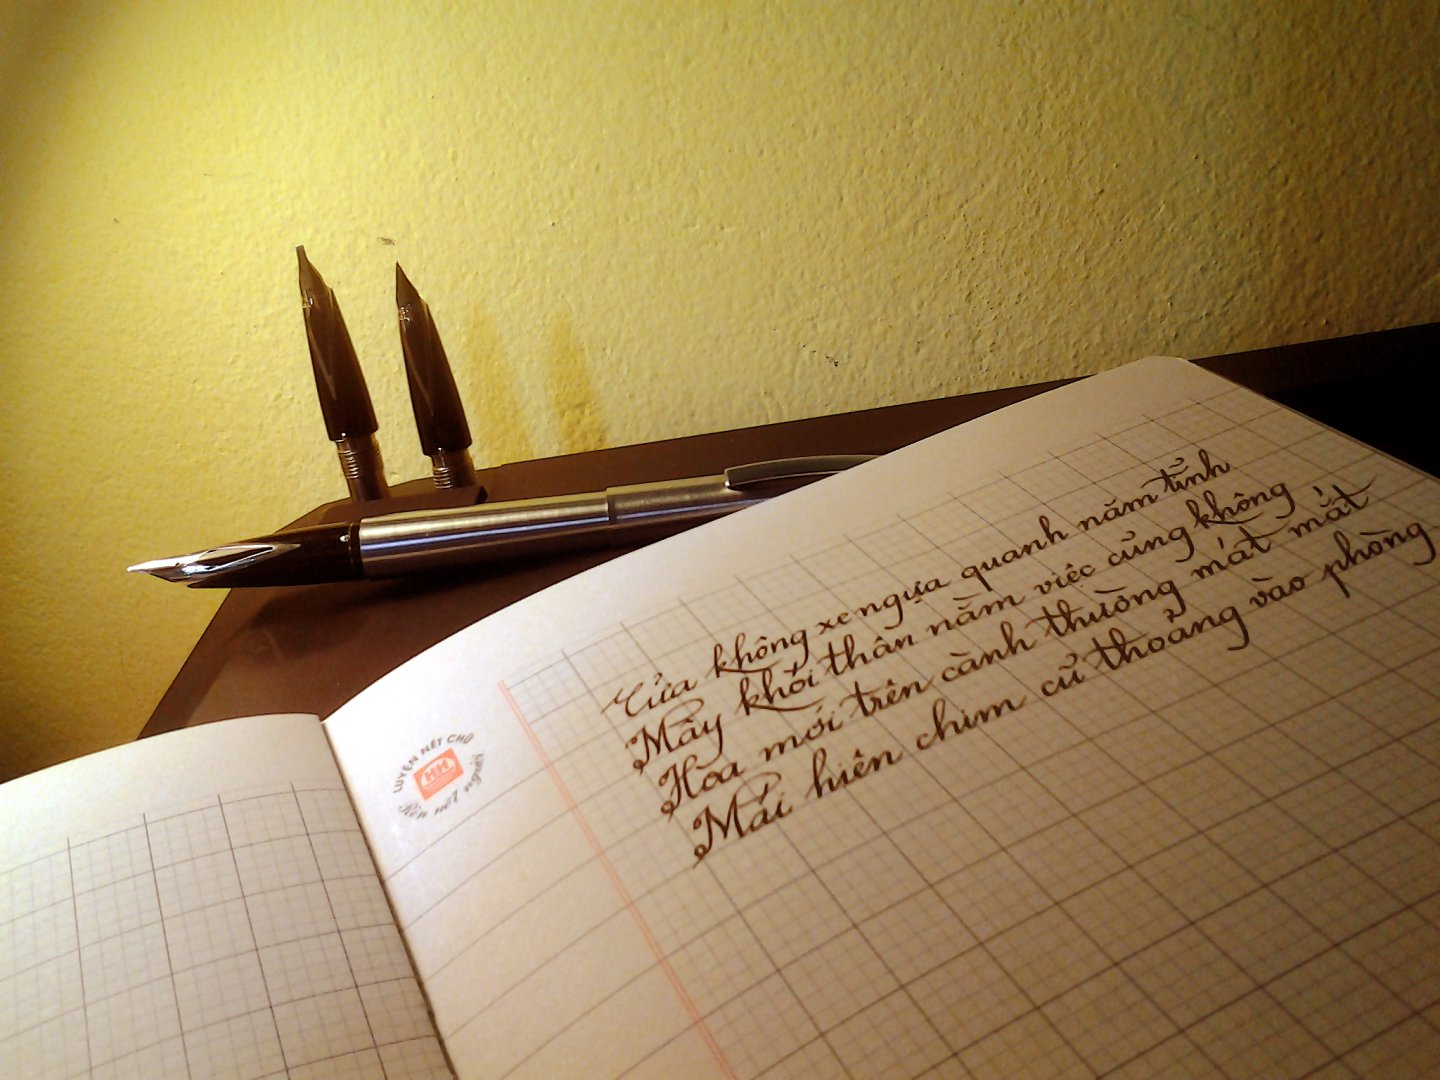 LUYỆN NÉT CHỮ
HH
Rèn nết người
Cửa không xe ngựa quanh năm tỉnh
Mây khói thân nằm việc cũng không
Hoa mới trên cành thường mát mắt
Mái hiên chim cũ thoảng vào phòng